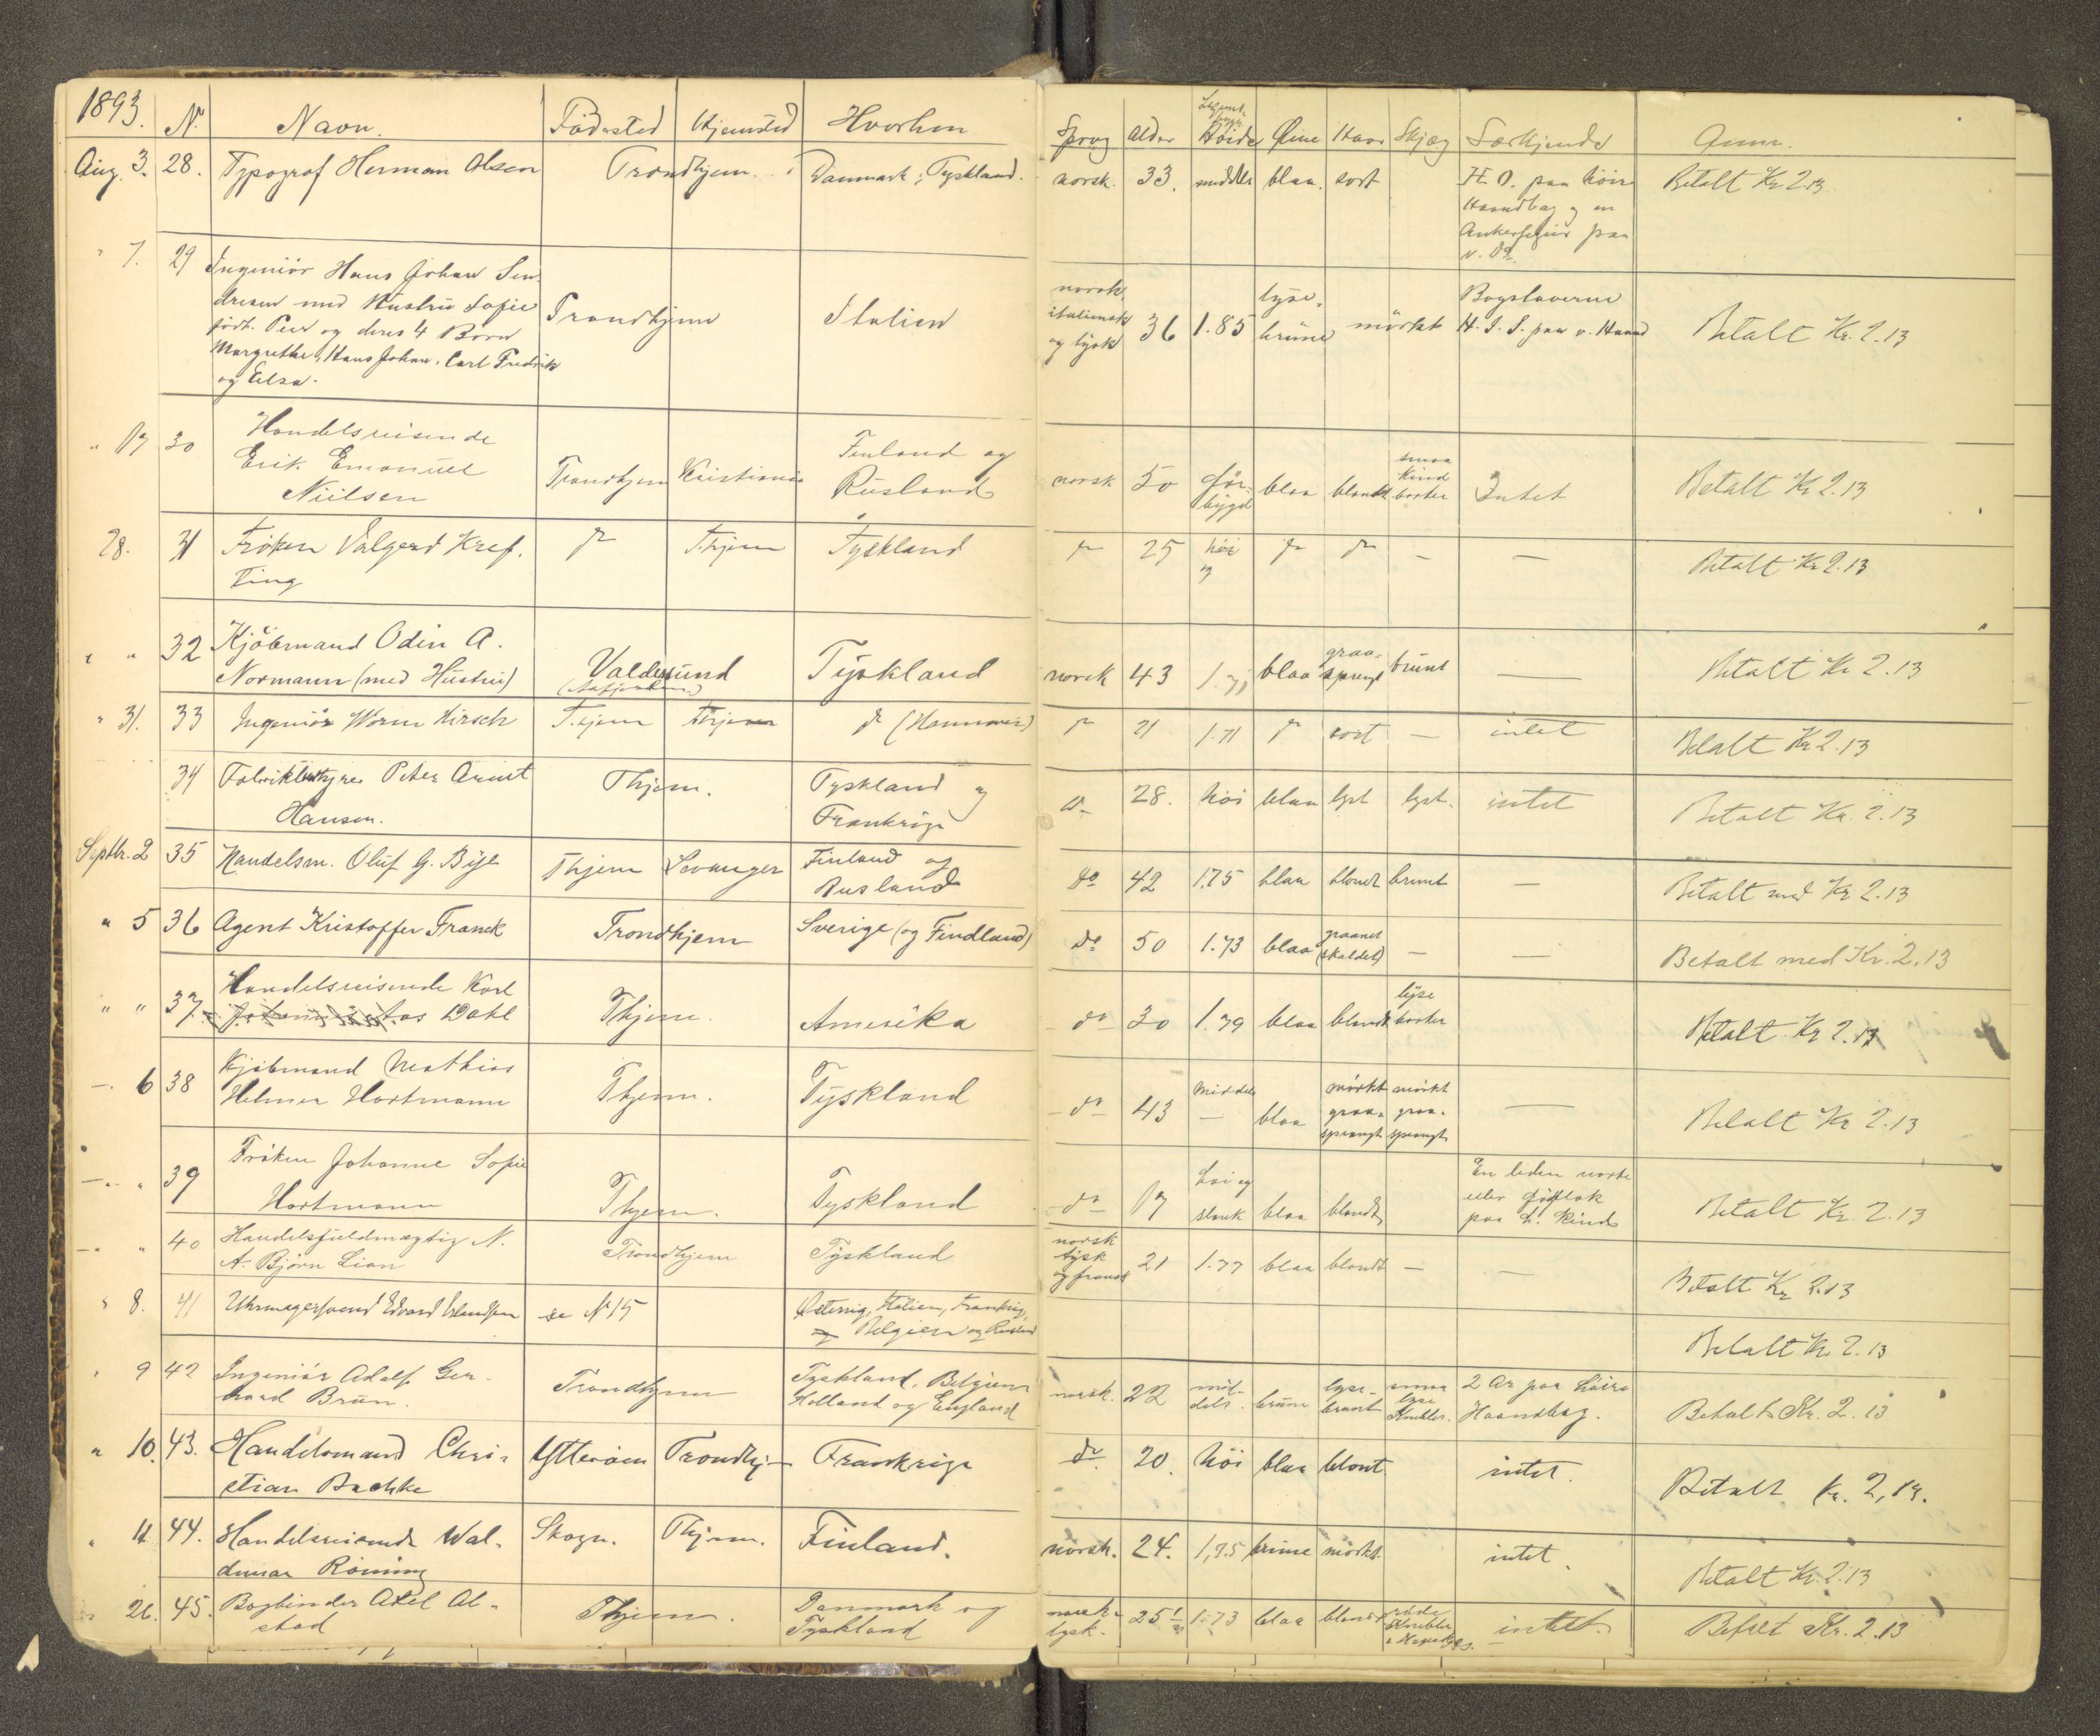 1893. No. Navn. Födested Hjemsted Hvorhen
Aug. 3. 28. Typograf Herman Olsen Trondhjem. Danmark, Tyskland.
" 7. 29 Ingeniör Hans Johan
med Hustru Sofie
födt. og deres 4 Börn Trondhjem Italien
Margrethe, Hans Johan, Carl Fredrik
og Elsa.
" 17 30 Handelsreisende
Erik Emanuel Trondhjem Kristiania Finland og
Nielsen Rusland
28. 31 Fröken Valgerd Kref- do Thjem Tyskland
ting
" " 32 Kjöbmand Odin A.
Normann (med Hustru) Valdersund Tyskland
" 31. 33 Ingeniör Worm Hirsch T.hjem Thjem do (Hannover)
34 Fabrikbestyrer Peter Arent Thjem. Tyskland og
Hansen. Frankrige
Septbr. 2 35 Handelsm. Oluf G. Bye Thjem Levanger Finland og
Rusland
" 5 36 Agent Kristoffer Franck Trondhjem Sverige (og Findland)
" " 37 Handelsreisende Karl
Dahl Thjem. Amerika
6 38 Kjöbmand Mathias
Helmer Hartmann Thjem. Tyskland
" 39 Fröken Johanne Sofie
Hartmann Thjem. Tyskland
" 40 Handelsfuldmægtig N.
A. Björn Lian Trondhjem Tyskland
" 8. 41 Uhrmagersvend Edvard Erlandsen se No 15 Østerrig, Italien, Frankrig,
Belgien og Rusland
" 9 42 Ingeniör Adolf Ger-
hard Brun. Trondhjem Tyskland, Belgien
Holland og England
" 10. 43. Handelsmand Chri- Ytteröen Trondhj- Frankrige
stian Bachke
" 11 44. Handelsreisende Wal- Skogn. Thjem. Finland.
demar Röining
" 26. 45. Bogbinder Axel Al- Thjem. Danmark og
stad Tyskland
Sprog Alder Höide Øine Haar Skjæg Særkjende Anm.
norsk. 33. middels blaa. sort H.O. paa höire Betalt Kr 2.13
Haandbag og en
Ankerfigur paa
v. do.
norsk, italiensk og tysk 36 1.85 lyse-brune mörkt Bogstaverne Betalt Kr. 2.13
H. J. S. paa v. Haand
norsk 50 før-bygd blaa blondt smaa kind barter Intet Betalt Kr 2.13
do 25 höi do do – – Betalt Kr 2.13
norsk 43 blaa graa-sprengt brunt — Betalt Kr 2.13
do 21 1.71 do sort — intet Betalt Kr 2.13
do 28. höi blaa lyst lyst. intet Betalt Kr. 2.13
do 42 1.75 blaa blondt brunt — Betalt med Kr 2.13
do 50 1.73 blaa graanet (skaldet) — — Betalt med Kr. 2.13
do 30 1.79 blaa blondt lyse barter Betalt Kr 2.13
do 43 Middels — blaa mörkt graa-sprengt mörkt graa-sprengt — Betalt Kr 2.13
do 17 höi og slank blaa blondt En liden vorte Betalt Kr. 2.13
eller
paa h. Kind
norsk tysk og fransk 21 1.77 blaa blondt — — Betalt Kr 2.13
Betalt Kr. 2.13
norsk. 22 mid-dels. brune lyse-brunt smaa lyse Knebler. 2 Ar paa höire Betalt Kr. 2.13
Haandbag.
do 20. höi blaa blont intet. Betalt Kr. 2,13.
norsk. 24. 1,75 brune mörkt. intet. Betalt Kr. 2.13
norsk tysk. 25 1.73 blaa blondt röde Knebler intet. Betalt Kr. 2.13